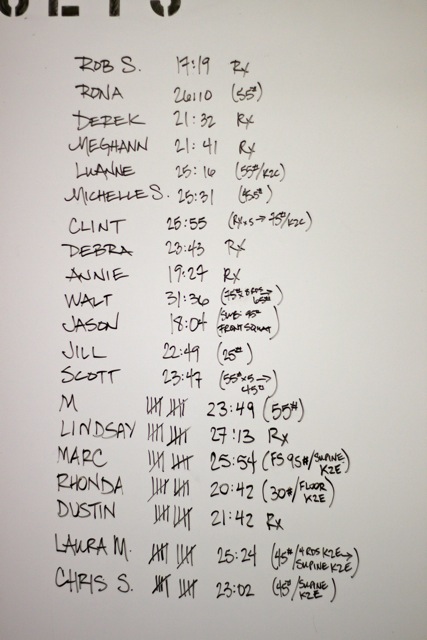 ROB S. 17:19 Rx
RONA 26:10 (55#)
DEREK 21:32 Rx
MEGHANN 21:41 Rx
LUANNE 25:16 (55#/K2C)
MICHELLE S. 25:31 (45#)
CLINT 25:55 (RX x 5 → 75#/K2C)
DEBRA 23:43 Rx
ANNIE 19:27 Rx
WALT 31:36 (75# x 8 RDS → 65#)
JASON 18:04 (SUB: 95# FRONT SQUAT)
JILL 22:49 (25#)
SCOTT 23:47 (55# x 5 → 45#)
M 23:49 (55#)
LINDSAY 27:13 Rx
MARC 25:54 (FS 95#/SUPINE K2E)
RHONDA 20:42 (30#/FLOOR K2E)
DUSTIN 21:42 Rx
LAURA M. 25:24 (45#/4 RDS K2E → SUPINE K2E)
CHRIS S. 23:02 (45#/SUPINE K2E)